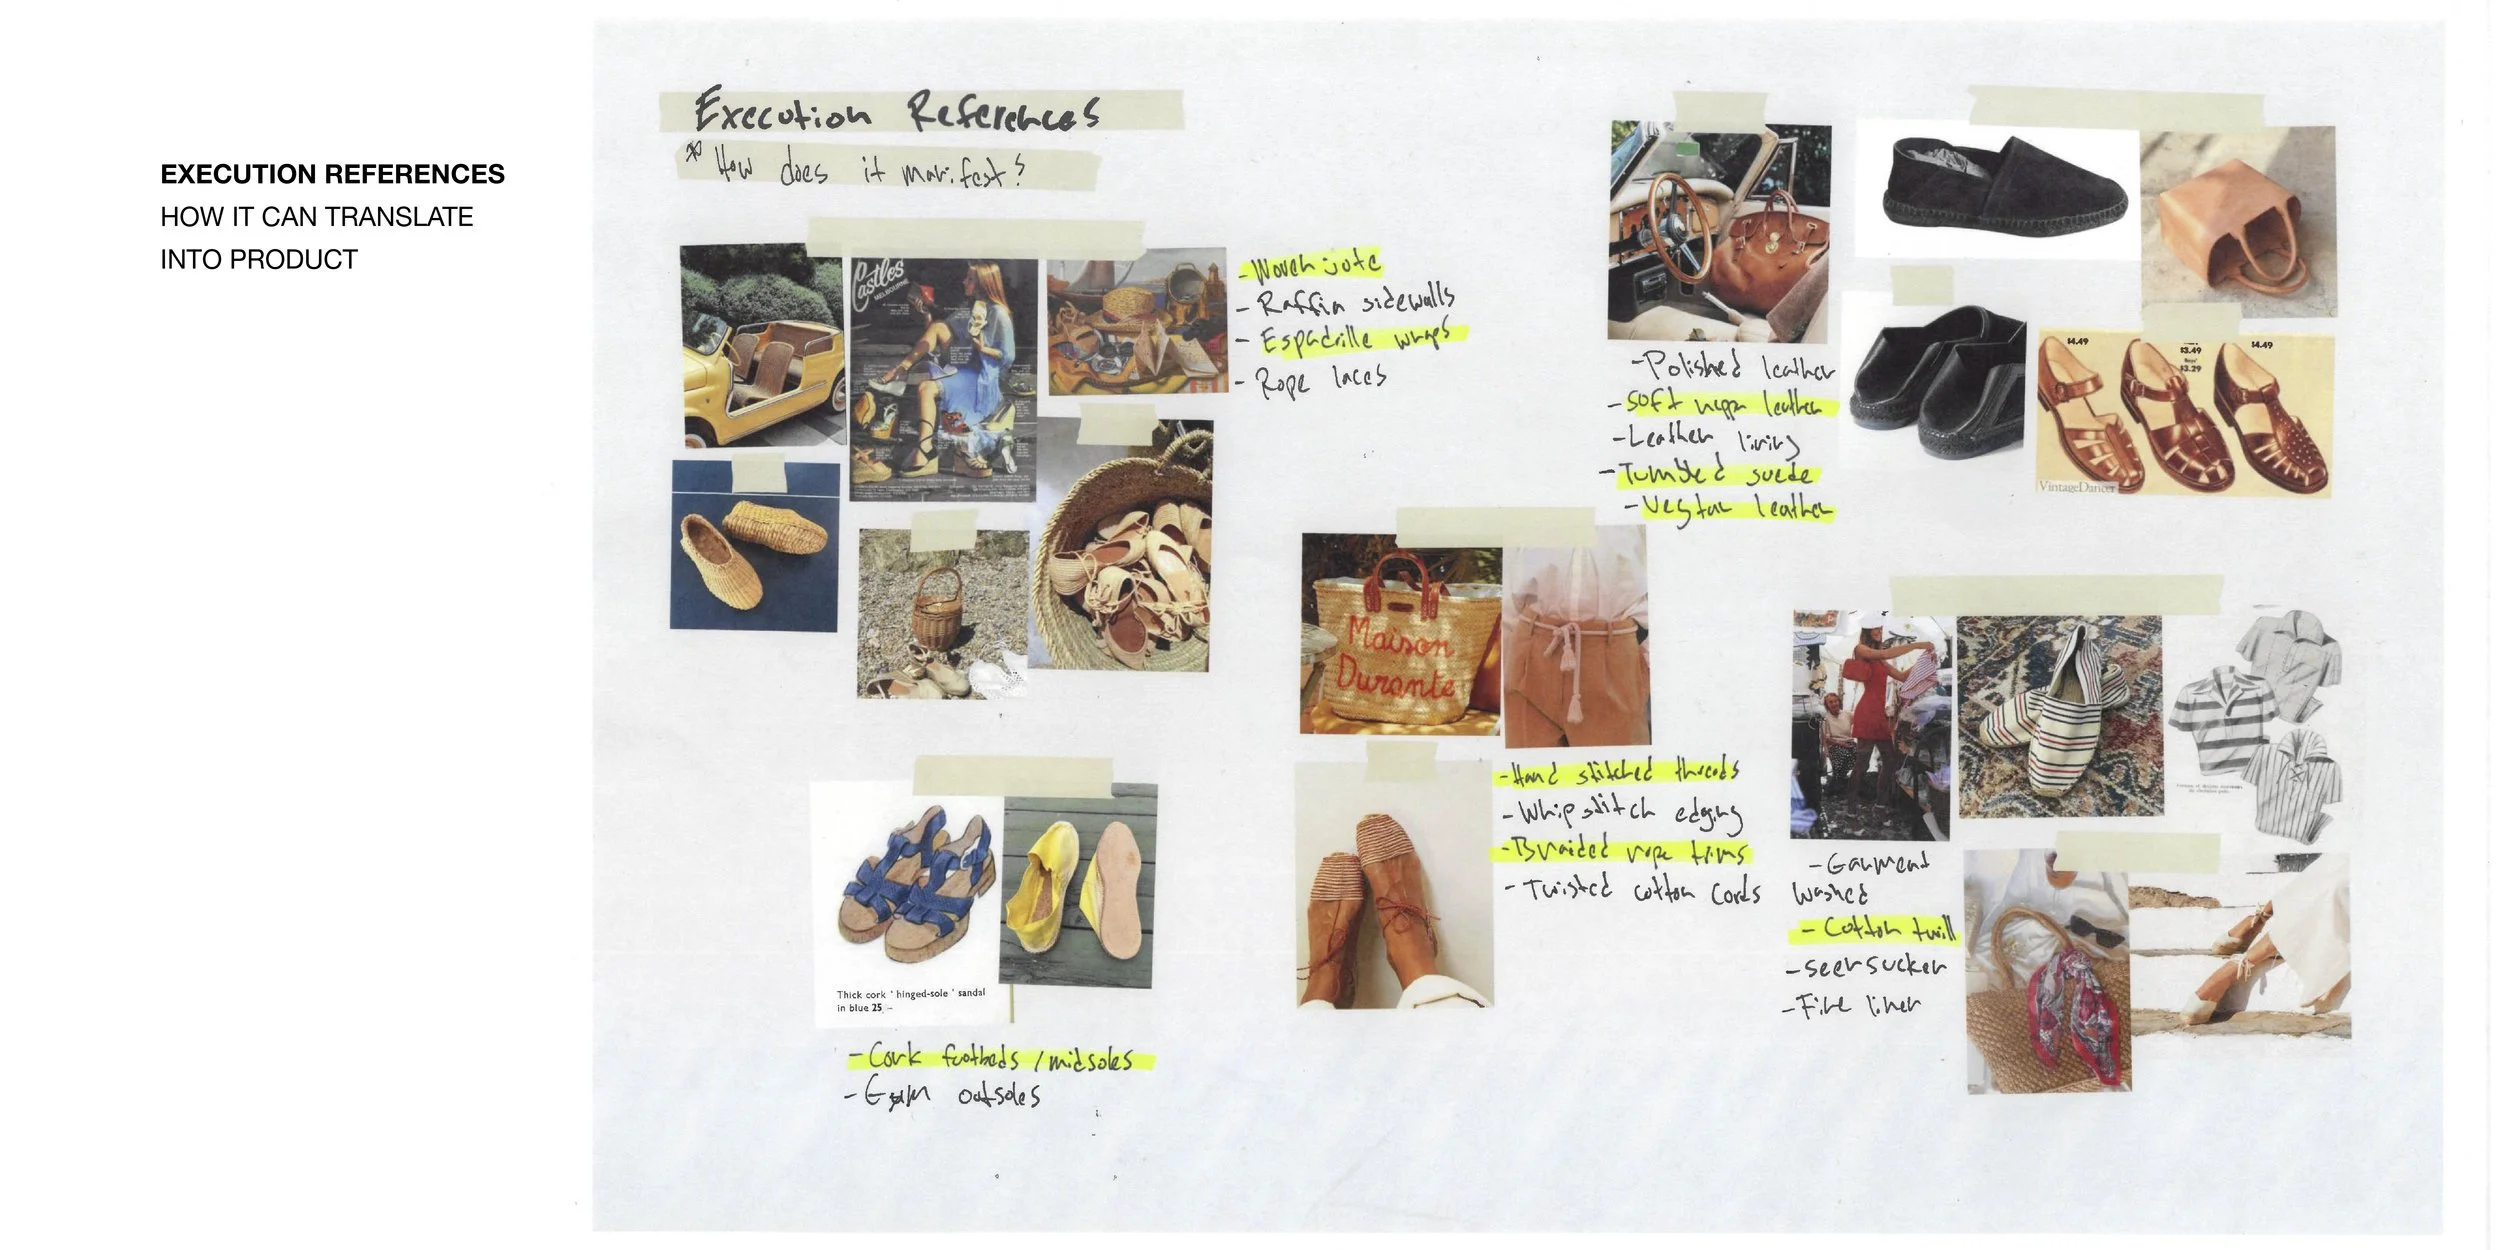 EXECUTION REFERENCES
HOW IT CAN TRANSLATE
INTO PRODUCT
Execution References
* How does it manifest?
Castles
MELBOURNE
- Woven jute
- Raffia sidewalls
- Espadrille wraps
- Rope laces
- Polished leather
- Soft nappa leather
- Leather lining
- Tumbled suede
- Vegtan leather
$4.49
$3.49
Boys'
$3.29
$4.49
VintageDancer
Maison
Durante
- Hand stitched threads
- Whip stitch edging
- Braided rope trims
- Twisted cotton cords
- Garment
washed
- Cotton twill
- Seersucker
- Fine liner
Thick cork ' hinged-sole ' sandal
in blue 25/–
- Cork footbeds / midsoles
- Gum outsoles